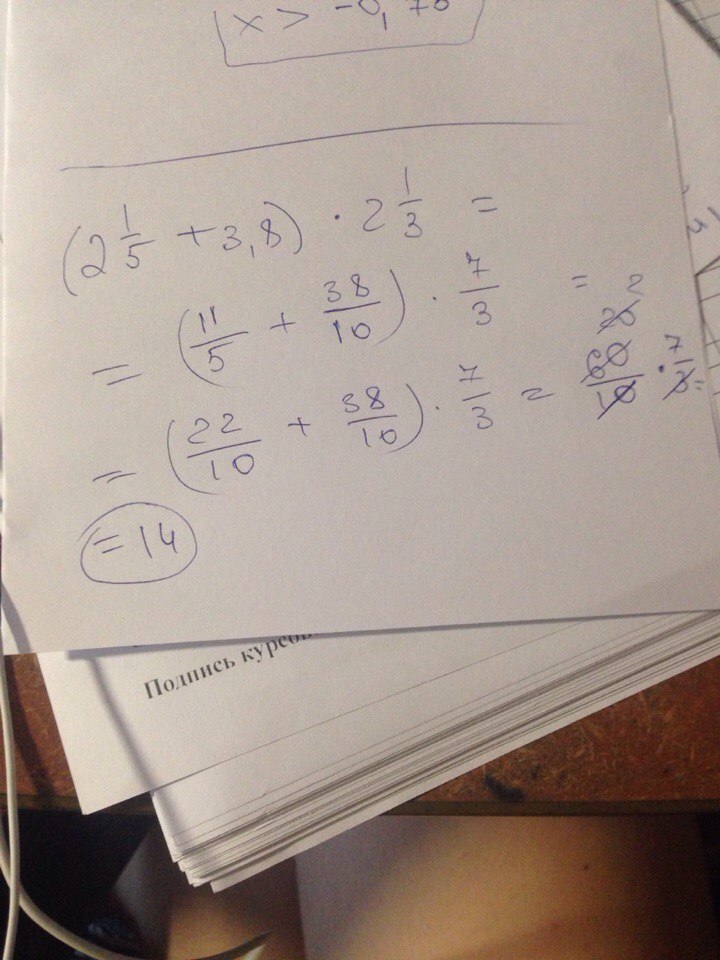 x > -0,78
(2 1/5 + 3,8) · 2 1/3 =
= (11/5 + 38/10) · 7/3 =
= (22/10 + 38/10) · 7/3 = 60/10 · 7/3 =
20 2
= 14
Подпись курсов